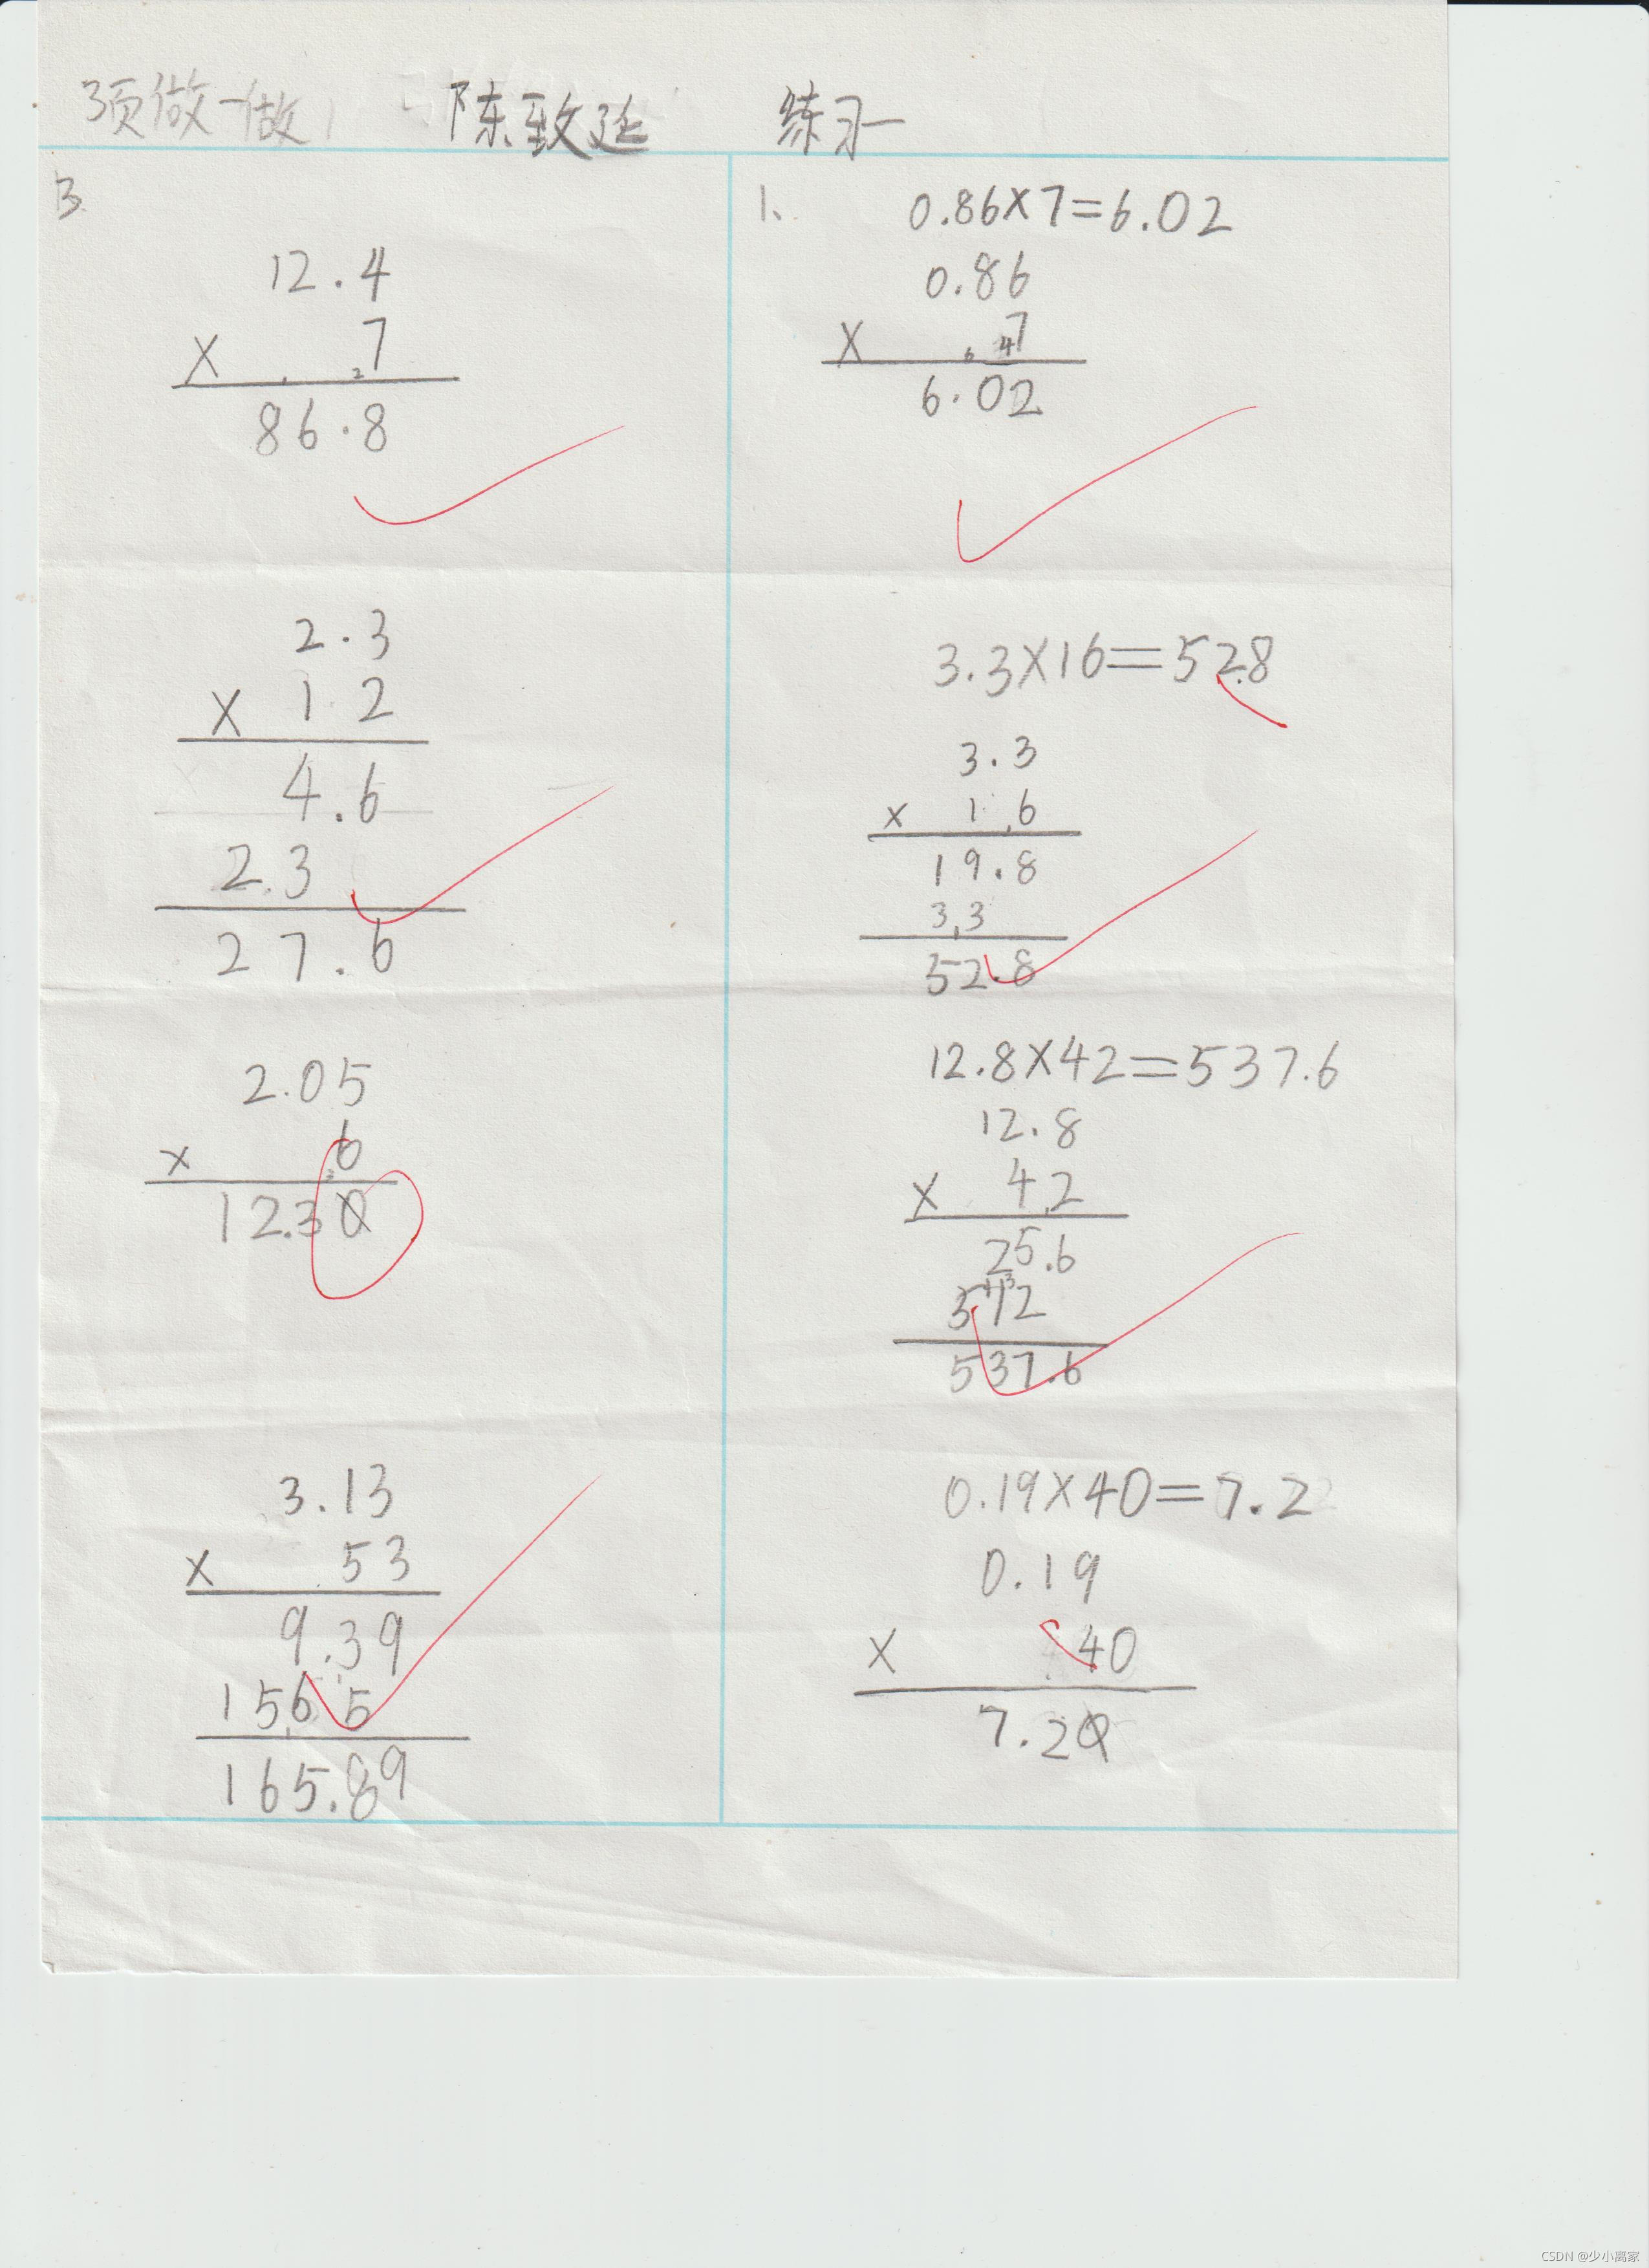 3页做一做 陈致延 练习一
3.
12.4
× 7
86.8
2.3
× 12
4.6
2.3
27.6
2.05
× 6
12.30
3.13
× 53
9.39
156 5
165.89
1、 0.86×7=6.02
0.86
× 7
6.02
3.3×16=52.8
3.3
× 16
19.8
3 3
52.8
12.8×42=537.6
12.8
× 42
25.6
512
537.6
0.19×40=7.2
0.19
× 40
7.20
CSDN @少小离家